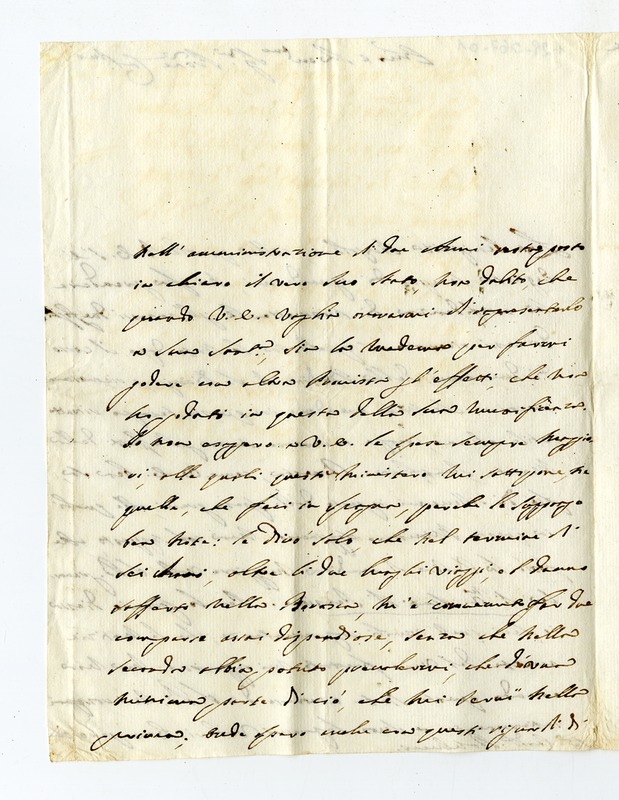 Nell' amministrazione di due Anni restra posto
in chiaro il vero suo stato, non dubito, che
quando V. E. voglia onorarmi di rappresentarlo
a Sua Sant.ª, sia la medema per farmi
godere con altra Provista gl' effetti, che non
ho godati in questa della sua munificenza.
Io non esagero a V. E. le spese sempre maggio
ri, alle quali questo ministero mi sottopone, ne
quelle, che feci in Spagna, perche le suppongo
ben note: le dico solo, che nel termine di
sei Anni, oltre li due lunghi viaggi, e l danno
sofferto nella, mi è convenuto far due
comparse assai dispendiose, senza che nella
seconda abbia potuto prevalermi, che d'una
minima parte di ciò, che mi servì nella
prima; onde spero anche con questi riguardi di